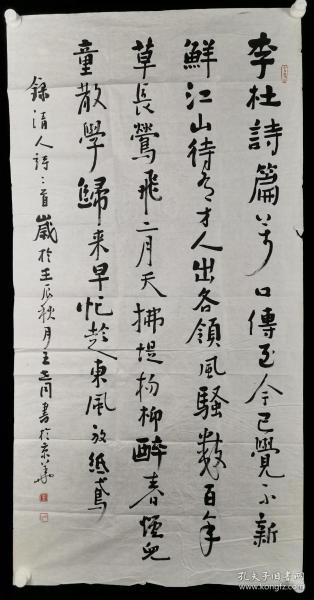 李杜詩篇萬口傳至今已覺不新
鮮江山待有才人出各領風騷數百年
草長鶯飛二月天拂堤楊柳醉春煙兒
童散學歸来早忙趁東風放紙鳶
錄清人詩二首歲於壬辰秋月王 書於京華
孔夫子旧书网